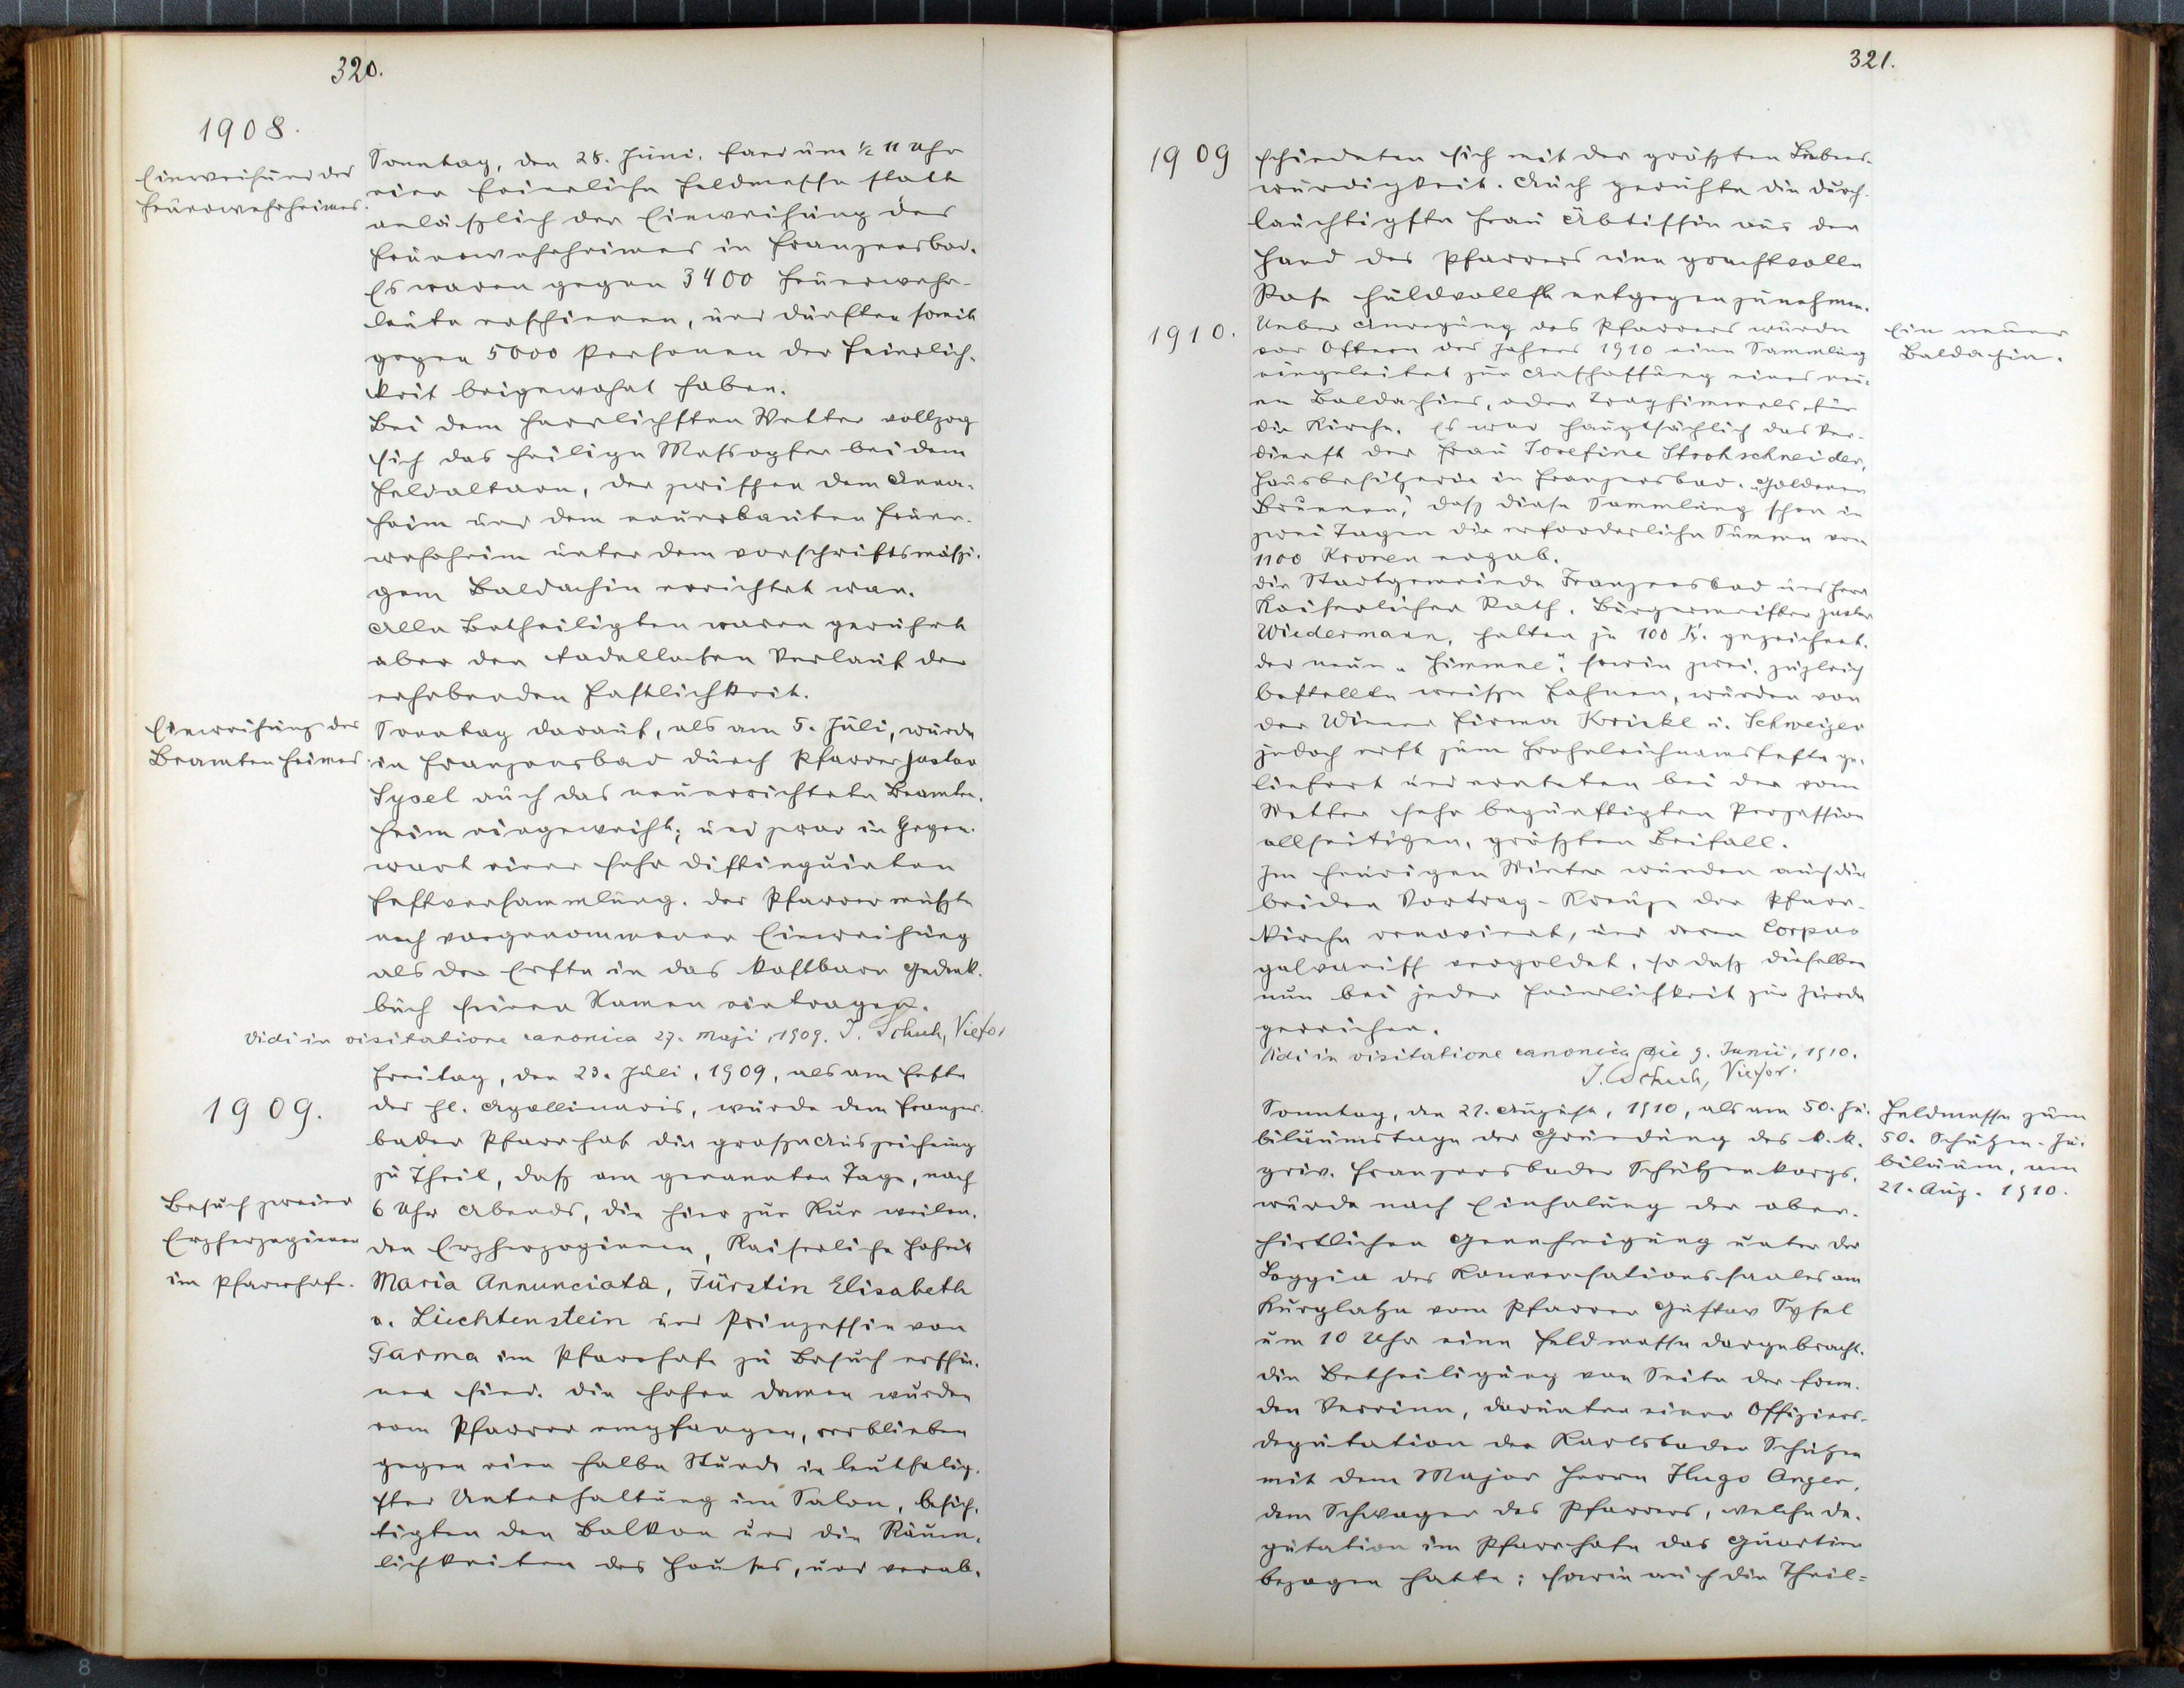 320.
1908.
Einweihung des
Feuerwehrheimes.
Sonntag, den 28. Juni, fand um ½ 11 Uhr
eine feierliche Feldmesse statt
anläßlich der Einweihung des
Feuerwehrheimes in Franzensbad.
Es waren gegen 3400 Feuerwehr-
leute erschienen, und dürften somit
gegen 5000 Personen der Feierlich-
keit beigewohnt haben.
Bei dem herrlichsten Wetter vollzog
sich das heilige Meßopfer bei dem
Feldaltare, der zwischen dem Anna-
heim und dem neuerbauten Feuer-
wehrheim unter dem vorschriftsmäßi-
gem Baldachin errichtet war.
Alle Betheiligten waren gerührt
über den tadellosen Verlauf der
erhebenden Festlichkeit.
Einweihung des
Beamtenheimes.
Sonntag darauf, als am 5. Juli, wurde
in Franzensbad durch Pfarrer Gustav
Sysel auch das neuerrichtete Beamten-
heim eingeweiht; und zwar in Gegen-
wart einer sehr distinguirten
Festversammlung. Der Pfarrer mußte
nach vorgenommener Einweihung
als der Erste in das kostbare Gedenk-
buch seinen Namen eintragen.
Vidi in visitatione canonica 27. Maji, 1909. J. Schuh, Vic. for.
1909.
Freitag, den 23. Juli, 1909, als am Feste
des hl. Apollinaris, wurde dem Franzens-
bader Pfarrhof die große Auszeichnung
zu Theil, daß am genannten Tage, nach
Besuch zweier
Erzherzoginnen
im Pfarrhofe.
6 Uhr Abends, die hier zur Kur weilen-
den Erzherzoginnen, Kaiserliche Hoheit
Maria Annunciata, Fürstin Elisabeth
v. Liechtenstein und Prinzessin von
Parma im Pfarrhofe zu Besuch erschie-
nen sind. Die hohen Damen wurden
vom Pfarrer empfangen, verblieben
gegen eine halbe Stunde in leutselig-
ster Unterhaltung im Salon, besich-
tigten den Balkon und die Räum-
lichkeiten des Hauses, und verab-
321.
1909
schiedeten sich mit der größten Liebens-
würdigkeit. Auch geruhte die durch-
lauchtigste Frau Äbtissin aus der
Hand des Pfarrers eine prachtvolle
Rose huldvollst entgegenzunehmen.
1910.
Ein neuer
Baldachin.
Ueber Anregung des Pfarrers wurde
vor Ostern des Jahres 1910 eine Sammlung
eingeleitet zur Anschaffung eines neu-
en Baldachins, oder Traghimmels für
die Kirche. Es war hauptsächlich das Ver-
dienst der Frau Josefine Strohschneider,
Hausbesitzerin in Franzensbad „Goldenen
Brunnen“, daß diese Sammlung schon in
zwei Tagen die erforderliche Summe von
1100 Kronen ergab.
Die Stadtgemeinde Franzensbad und Herr
Kaiserlicher Rath, Bürgermeister Gustav
Wiedermann, hatten je 100 K. gezeichnet.
Der neue „Himmel“, sowie zwei, zugleich
bestellte weiße Fahnen, wurden von
der Wiener Firma Krickl u. Schweiger
jedoch erst zum Frohnleichnamsfeste ge-
liefert und ernteten bei der vom
Wetter sehr begünstigten Prozession
allseitigen, größten Beifall.
Im heurigen Winter wurden auch die
beiden Vortrag-Kreuze der Pfarr-
kirche renovirt, und deren Corpus
galvanisch vergoldet, so daß dieselben
nun bei jeder Feierlichkeit zur Zierde
gereichen.
Vidi in visitatione canonica die 9. Junii, 1910.
J. Schuh, Vic. for.
Feldmesse zum
50. Schützen-Ju-
biläum, am
21. Aug. 1910.
Sonntag, den 21. August, 1910, als am 50. Ju-
biläumstage der Gründung des k. k.
priv. Franzensbader Schützenkorps,
wurde nach Einholung der ober-
hirtlichen Genehmigung unter der
Loggia des Konversationssaales am
Kurplatze vom Pfarrer Gustav Sysel
um 10 Uhr eine Feldmesse dargebracht.
Die Betheiligung von Seite der frem-
den Vereine, darunter einer Offiziers-
deputation der Karlsbader Schützen
mit dem Major Herrn Hugo Anger,
dem Schwager des Pfarrers, welche De-
putation im Pfarrhofe das Quartier
bezogen hatte; sowie auch die Theil=